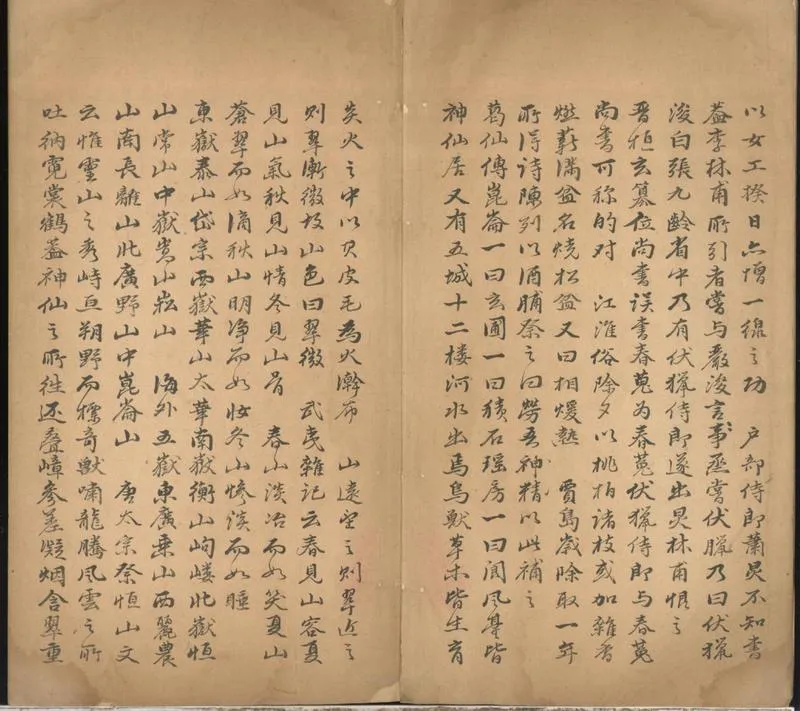 以女工揆日亦增一線之功　戶部侍郎蕭炅不知書
蓋李林甫所引者嘗與嚴浚言事丞嘗伏臘乃曰伏獵
浚白張九齡省中乃有伏獵侍郎遂出炅林甫恨之
晉桓玄篡位尚書誤書春蒐為春菟伏獵侍郎與春菟
尚書可稱的對　江淮俗除夕以桃柏諸枝或加雜香
燃薪滿盆名燒松盆又曰相煖熱　賈島歲除取一年
所得詩陳列以酒脯祭之曰勞吾神精以此補之
葛仙傳崑崙一曰玄圃一曰積石瑤房一曰閬風臺皆
神仙居又有五城十二楼河水出焉鳥獸草木皆生育
炎火之中以只皮毛為火澣布　山遠望之則翠近之
則翠漸微故山色曰翠微　武夷雜記云春見山容夏
見山氣秋見山情冬見山骨　春山淡冶而如笑夏山
蒼翠而如滴秋山明净而如妝冬山慘淡而如睡
東嶽泰山岱宗西嶽華山太華南嶽衡山岣嶁北嶽恒
山常山中嶽嵩山崧山　海外五嶽東廣乘山西麗農
山南長離山北廣野山中崑崙山　唐太宗祭恒山文
云惟靈山之秀峙亘朔野而標奇獸嘯龍騰風雲之所
吐納霓裳鶴蓋神仙之所往还疊嶂參差凝烟含翠重